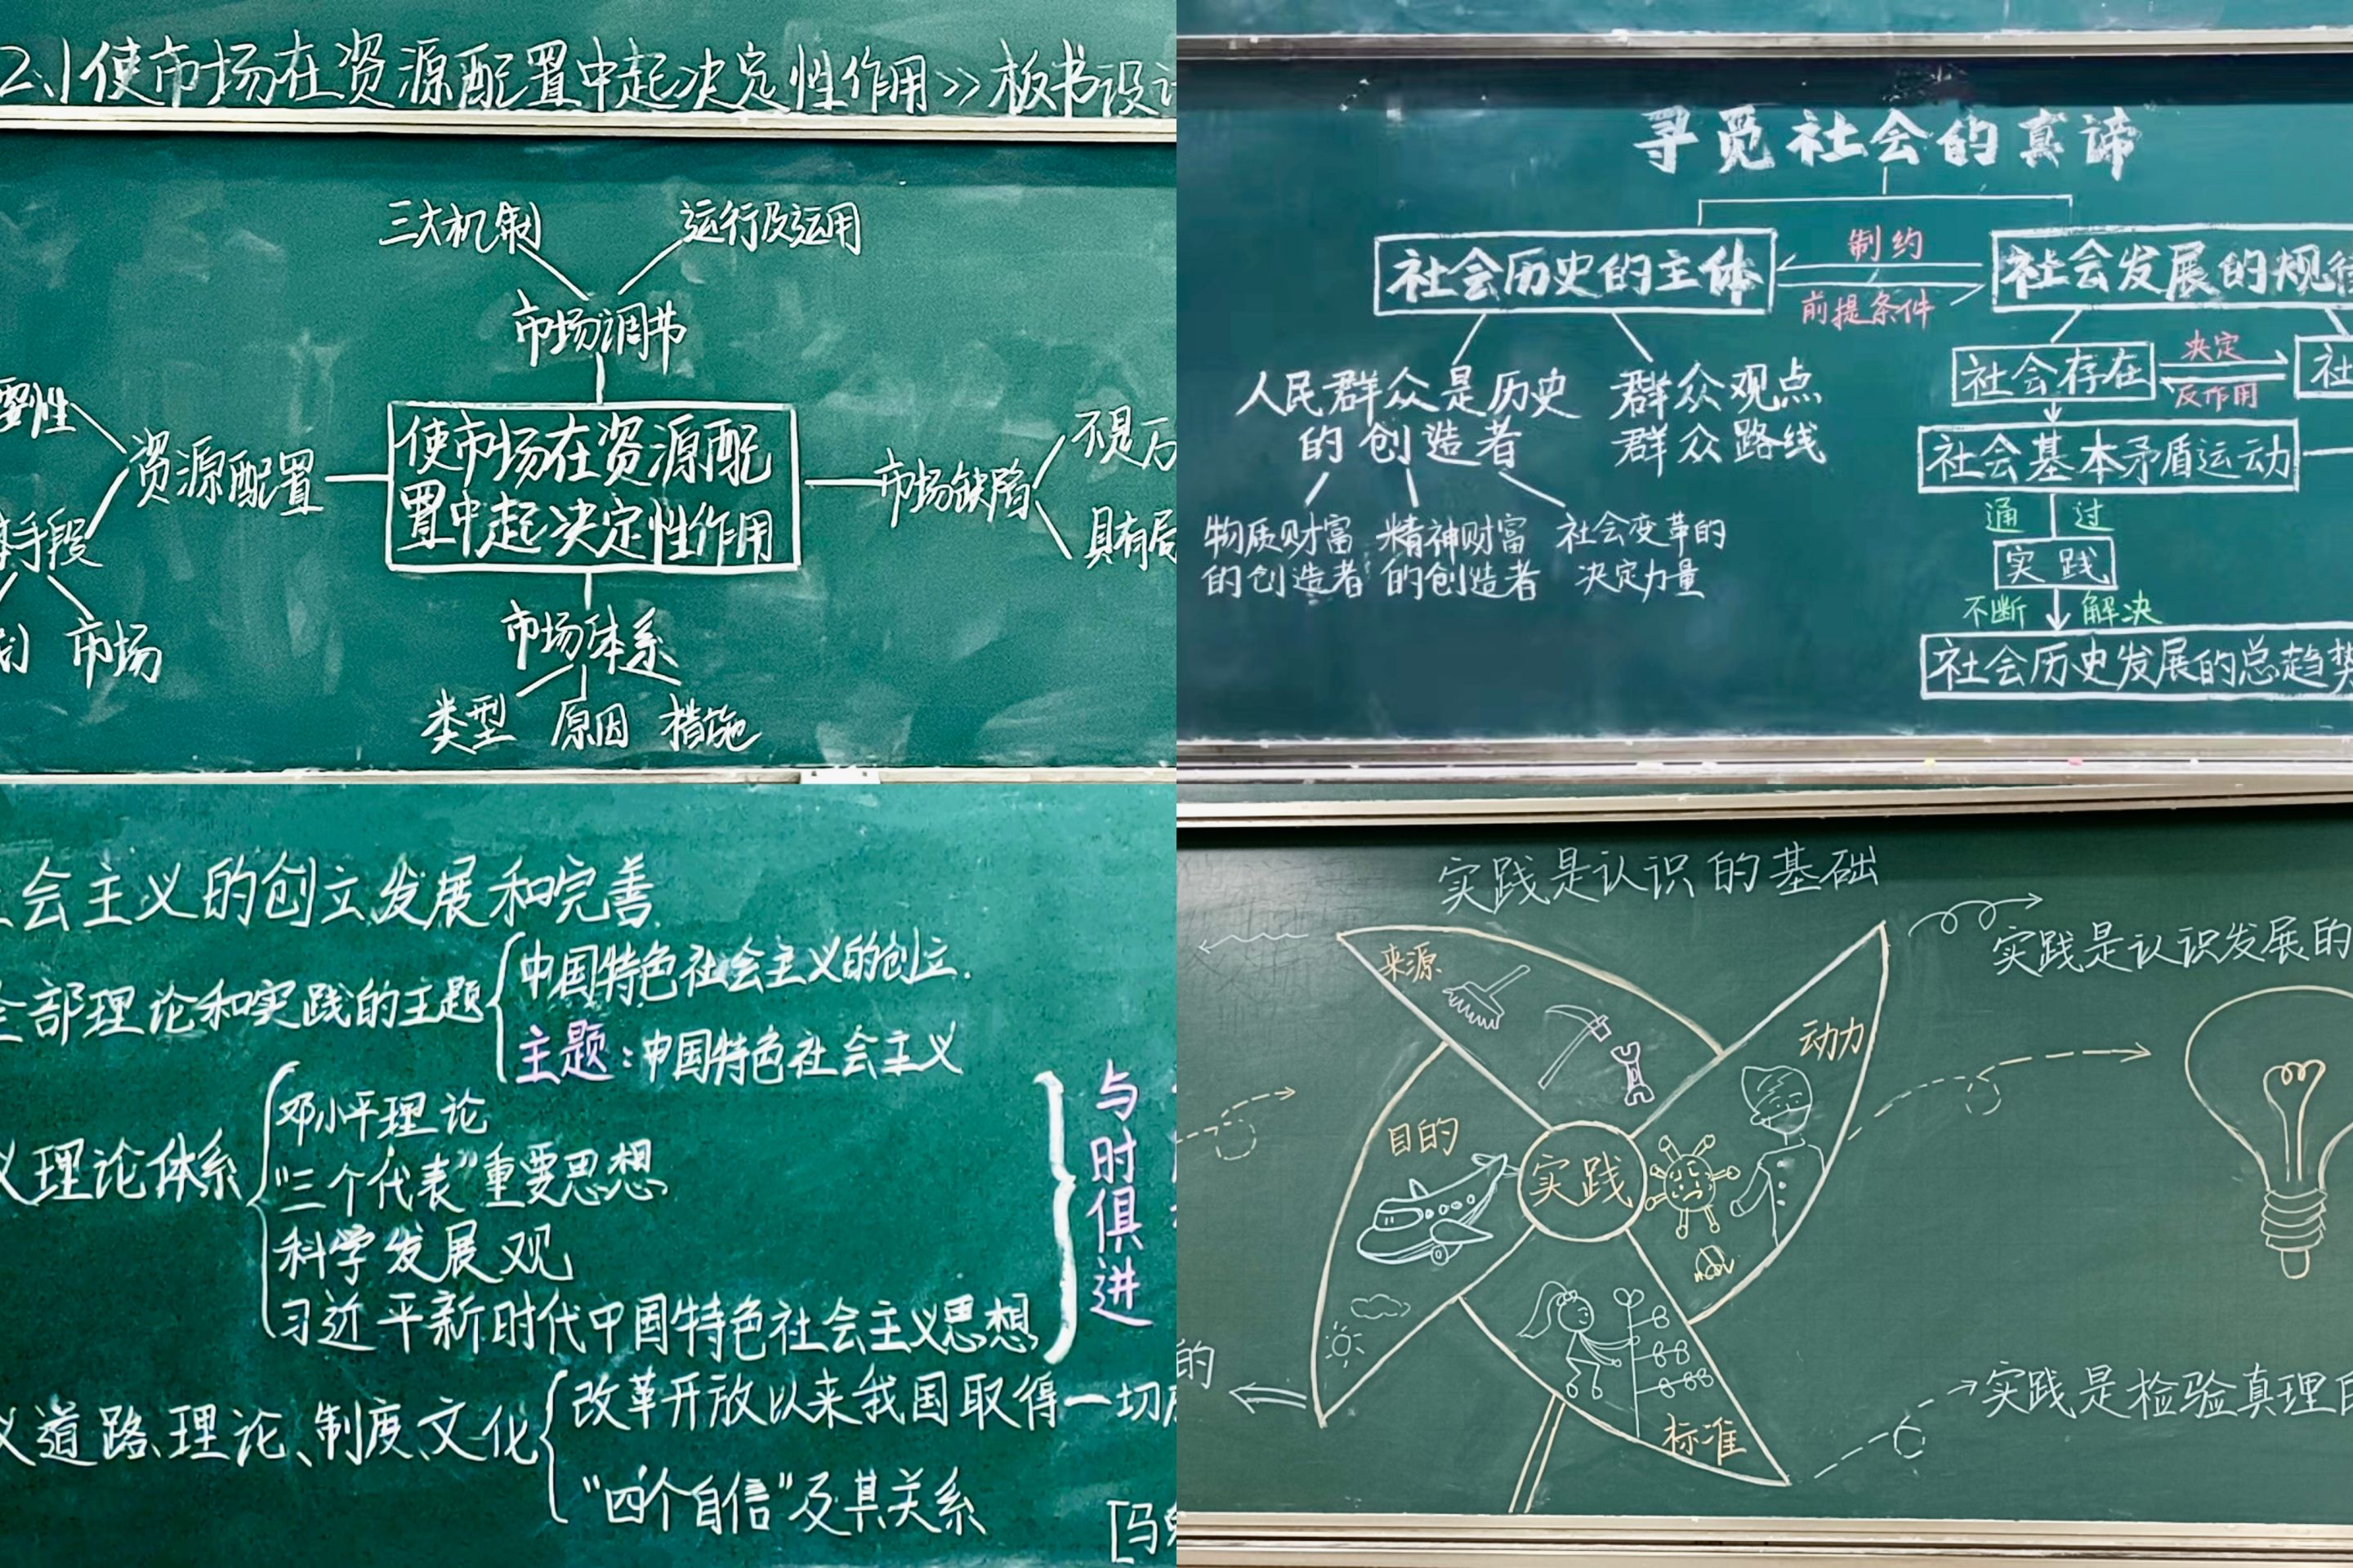 2.1使市场在资源配置中起决定性作用>>板书设计
三大机制
运行及运用
市场调节
要性
资源配置
使市场在资源配
置中起决定性作用
市场缺陷
不是万
具有局
手段
市场
市场体系
类型 原因 措施
寻觅社会的真谛
社会历史的主体
制约
前提条件
社会发展的规律
人民群众是历史
的创造者
群众观点
群众路线
物质财富
的创造者
精神财富
的创造者
社会变革的
决定力量
社会存在
决定
反作用
社
社会基本矛盾运动
通过
实践
不断 解决
社会历史发展的总趋势
会主义的创立、发展和完善
全部理论和实践的主题
中国特色社会主义的创立.
主题:中国特色社会主义
义理论体系
邓小平理论
“三个代表”重要思想
科学发展观
习近平新时代中国特色社会主义思想
与时俱进
义道路、理论、制度、文化
改革开放以来我国取得一切
“四个自信”及其关系
[马
实践是认识的基础
来源
动力
目的
实践
标准
实践是认识发展的
的
实践是检验真理